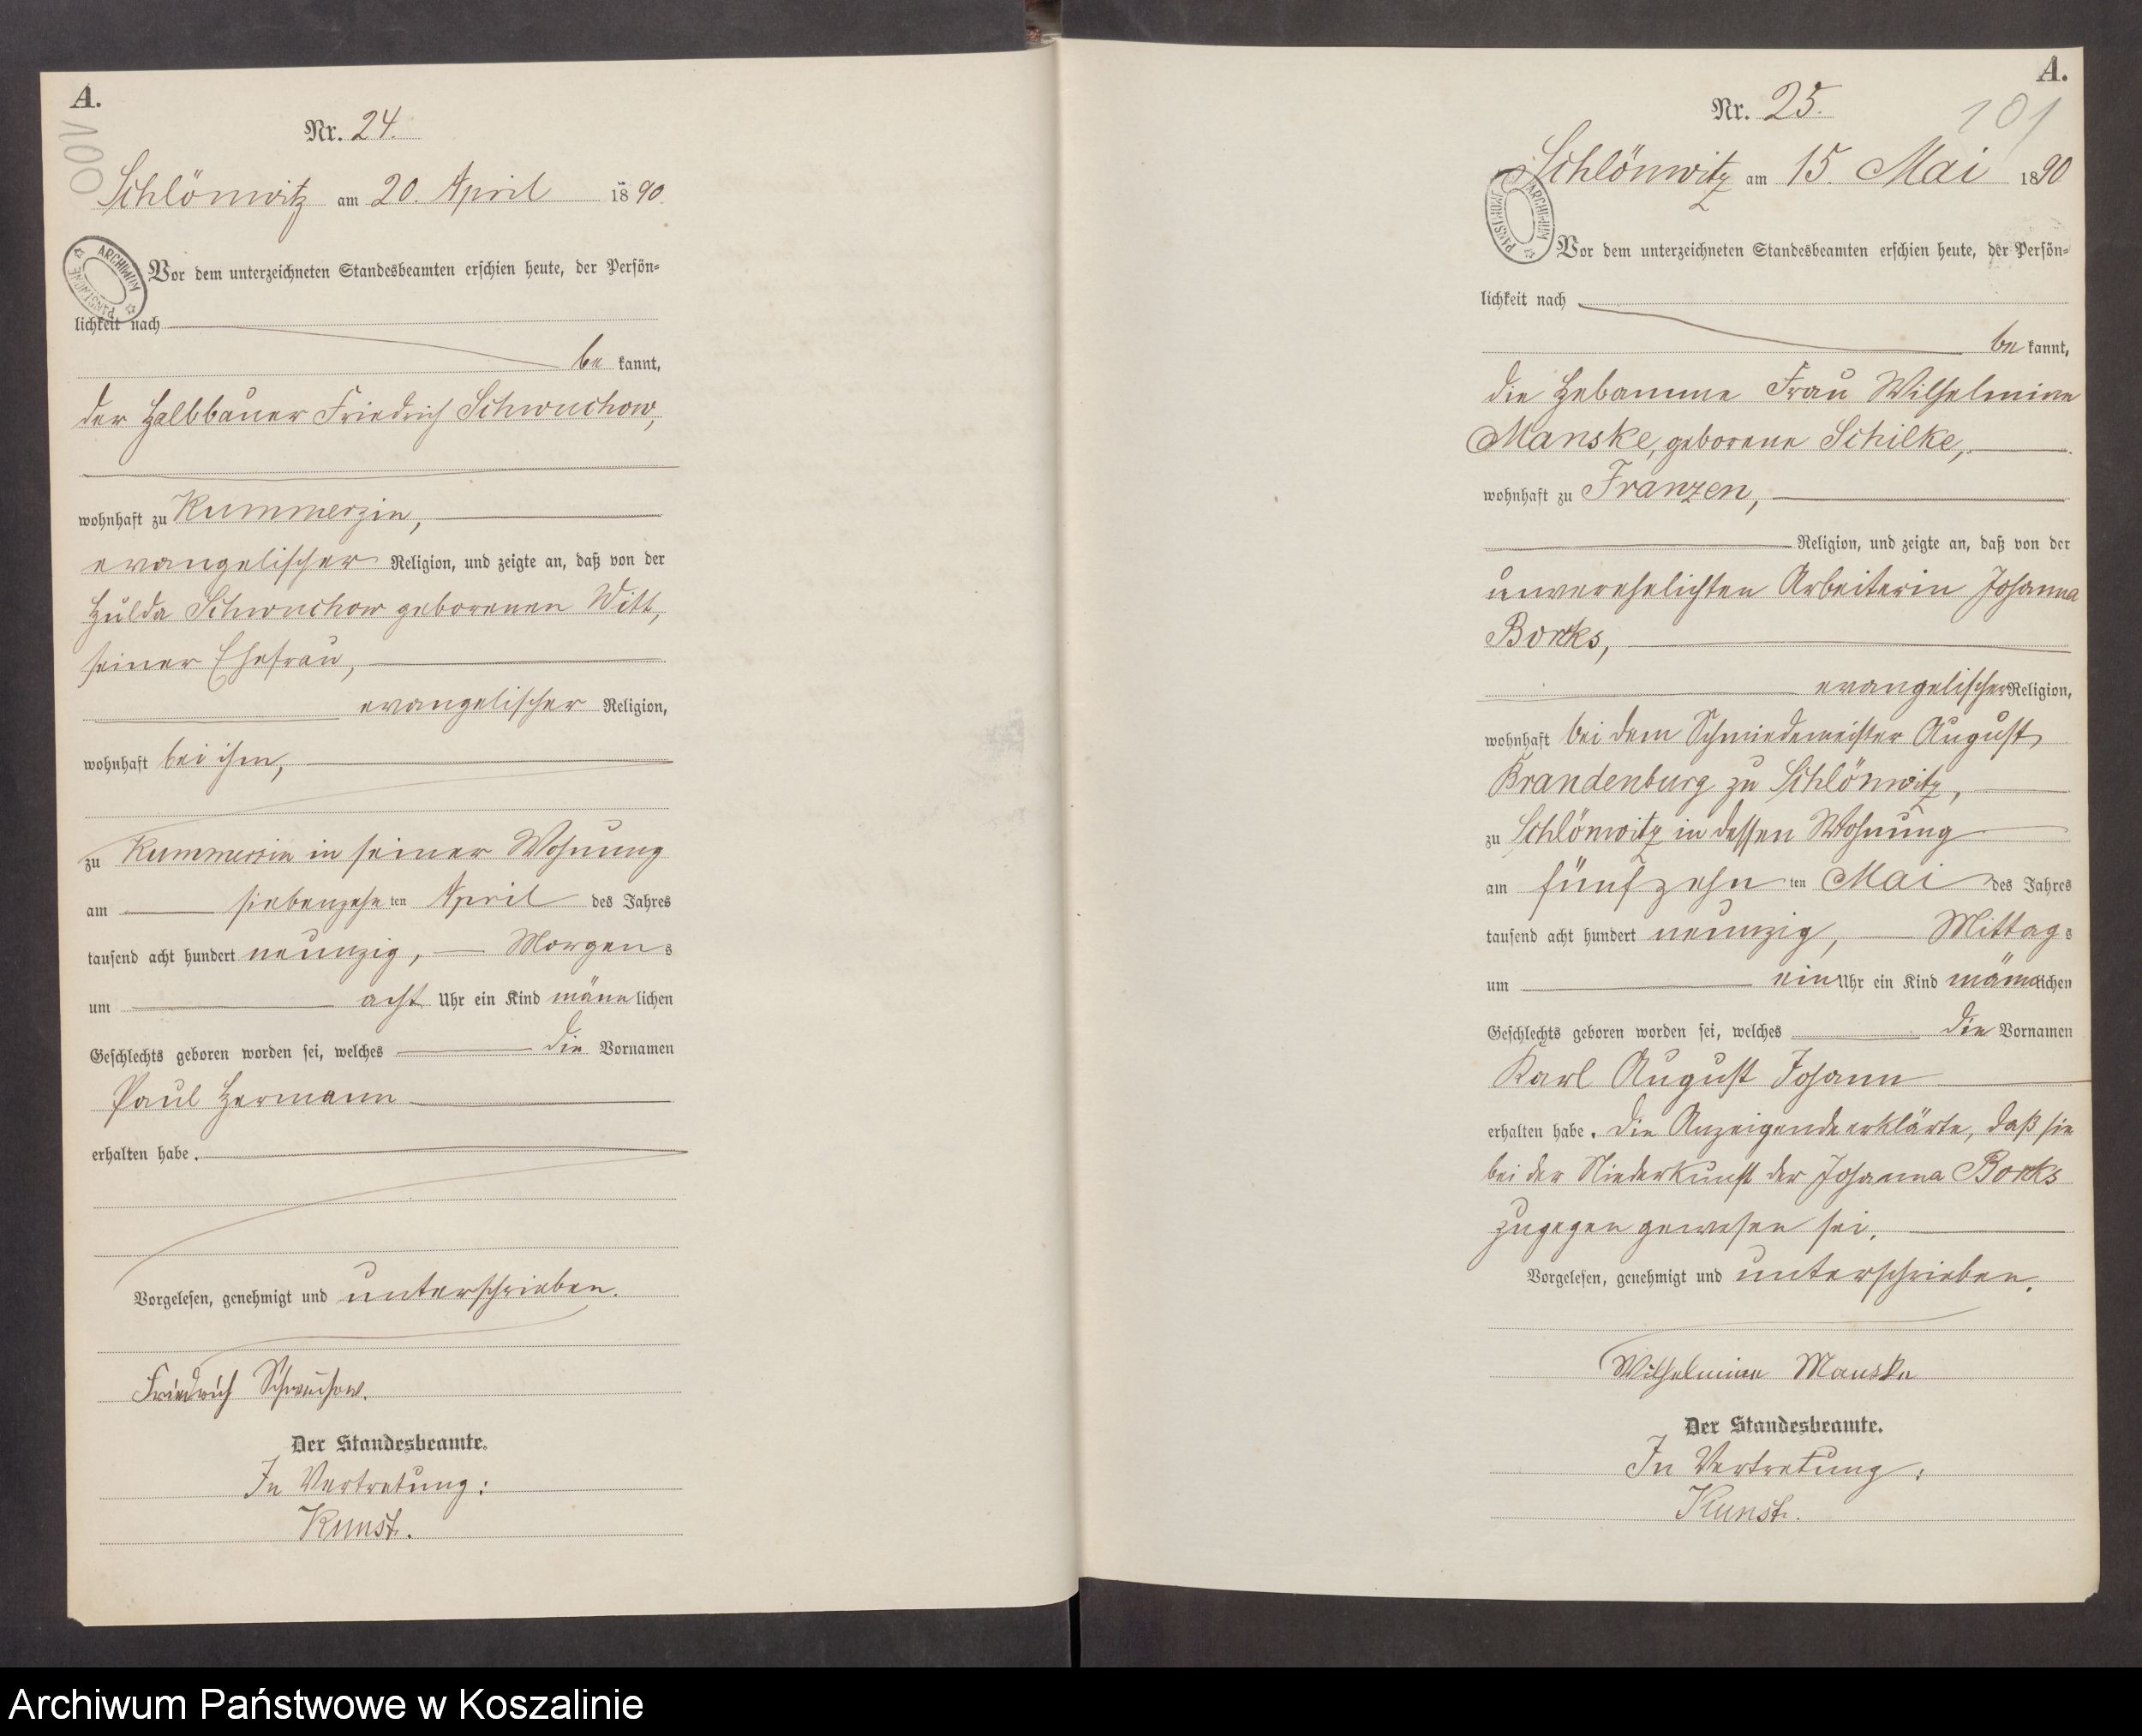 A.
100
Nr. 24.
Schlönwitz am 20. April 1890.
ARCHIWUM PAŃSTWOWE
Vor dem unterzeichneten Standesbeamten erschien heute, der Persön=
lichkeit nach
be kannt,
der Halbbauer Friedrich Schwuchow,
wohnhaft zu Kummerzin,
evangelischer Religion, und zeigte an, daß von der
Hulda Schwuchow geborenen Witt,
seiner Ehefrau,
evangelischer Religion,
wohnhaft bei ihm,
zu Kummerzin in seiner Wohnung
am siebenzehnten April des Jahres
tausend acht hundert neunzig, Morgens
um acht Uhr ein Kind männlichen
Geschlechts geboren worden sei, welches die Vornamen
Paul Hermann
erhalten habe.
Vorgelesen, genehmigt und unterschrieben.
Friedrich Schwuchow.
Der Standesbeamte.
In Vertretung:
Kunst.
A.
101
Nr. 25.
Schlönwitz am 15. Mai 1890
ARCHIWUM PAŃSTWOWE
Vor dem unterzeichneten Standesbeamten erschien heute, der Persön=
lichkeit nach
be kannt,
die Hebamme Frau Wilhelmine
Manske, geborene Schilke,
wohnhaft zu Franzen,
Religion, und zeigte an, daß von der
unverehelichten Arbeiterin Johanna
Borks,
evangelischer Religion,
wohnhaft bei dem Schmiedemeister August
Brandenburg zu Schlönwitz,
zu Schlönwitz in dessen Wohnung
am fünfzehnten Mai des Jahres
tausend acht hundert neunzig, Mittags
um ein Uhr ein Kind männlichen
Geschlechts geboren worden sei, welches die Vornamen
Karl August Johann
erhalten habe. Die Anzeigende erklärte, daß sie
bei der Niederkunft der Johanna Borks
zugegen gewesen sei.
Vorgelesen, genehmigt und unterschrieben.
Wilhelmine Manske
Der Standesbeamte.
In Vertretung:
Kunst.
Archiwum Państwowe w Koszalinie